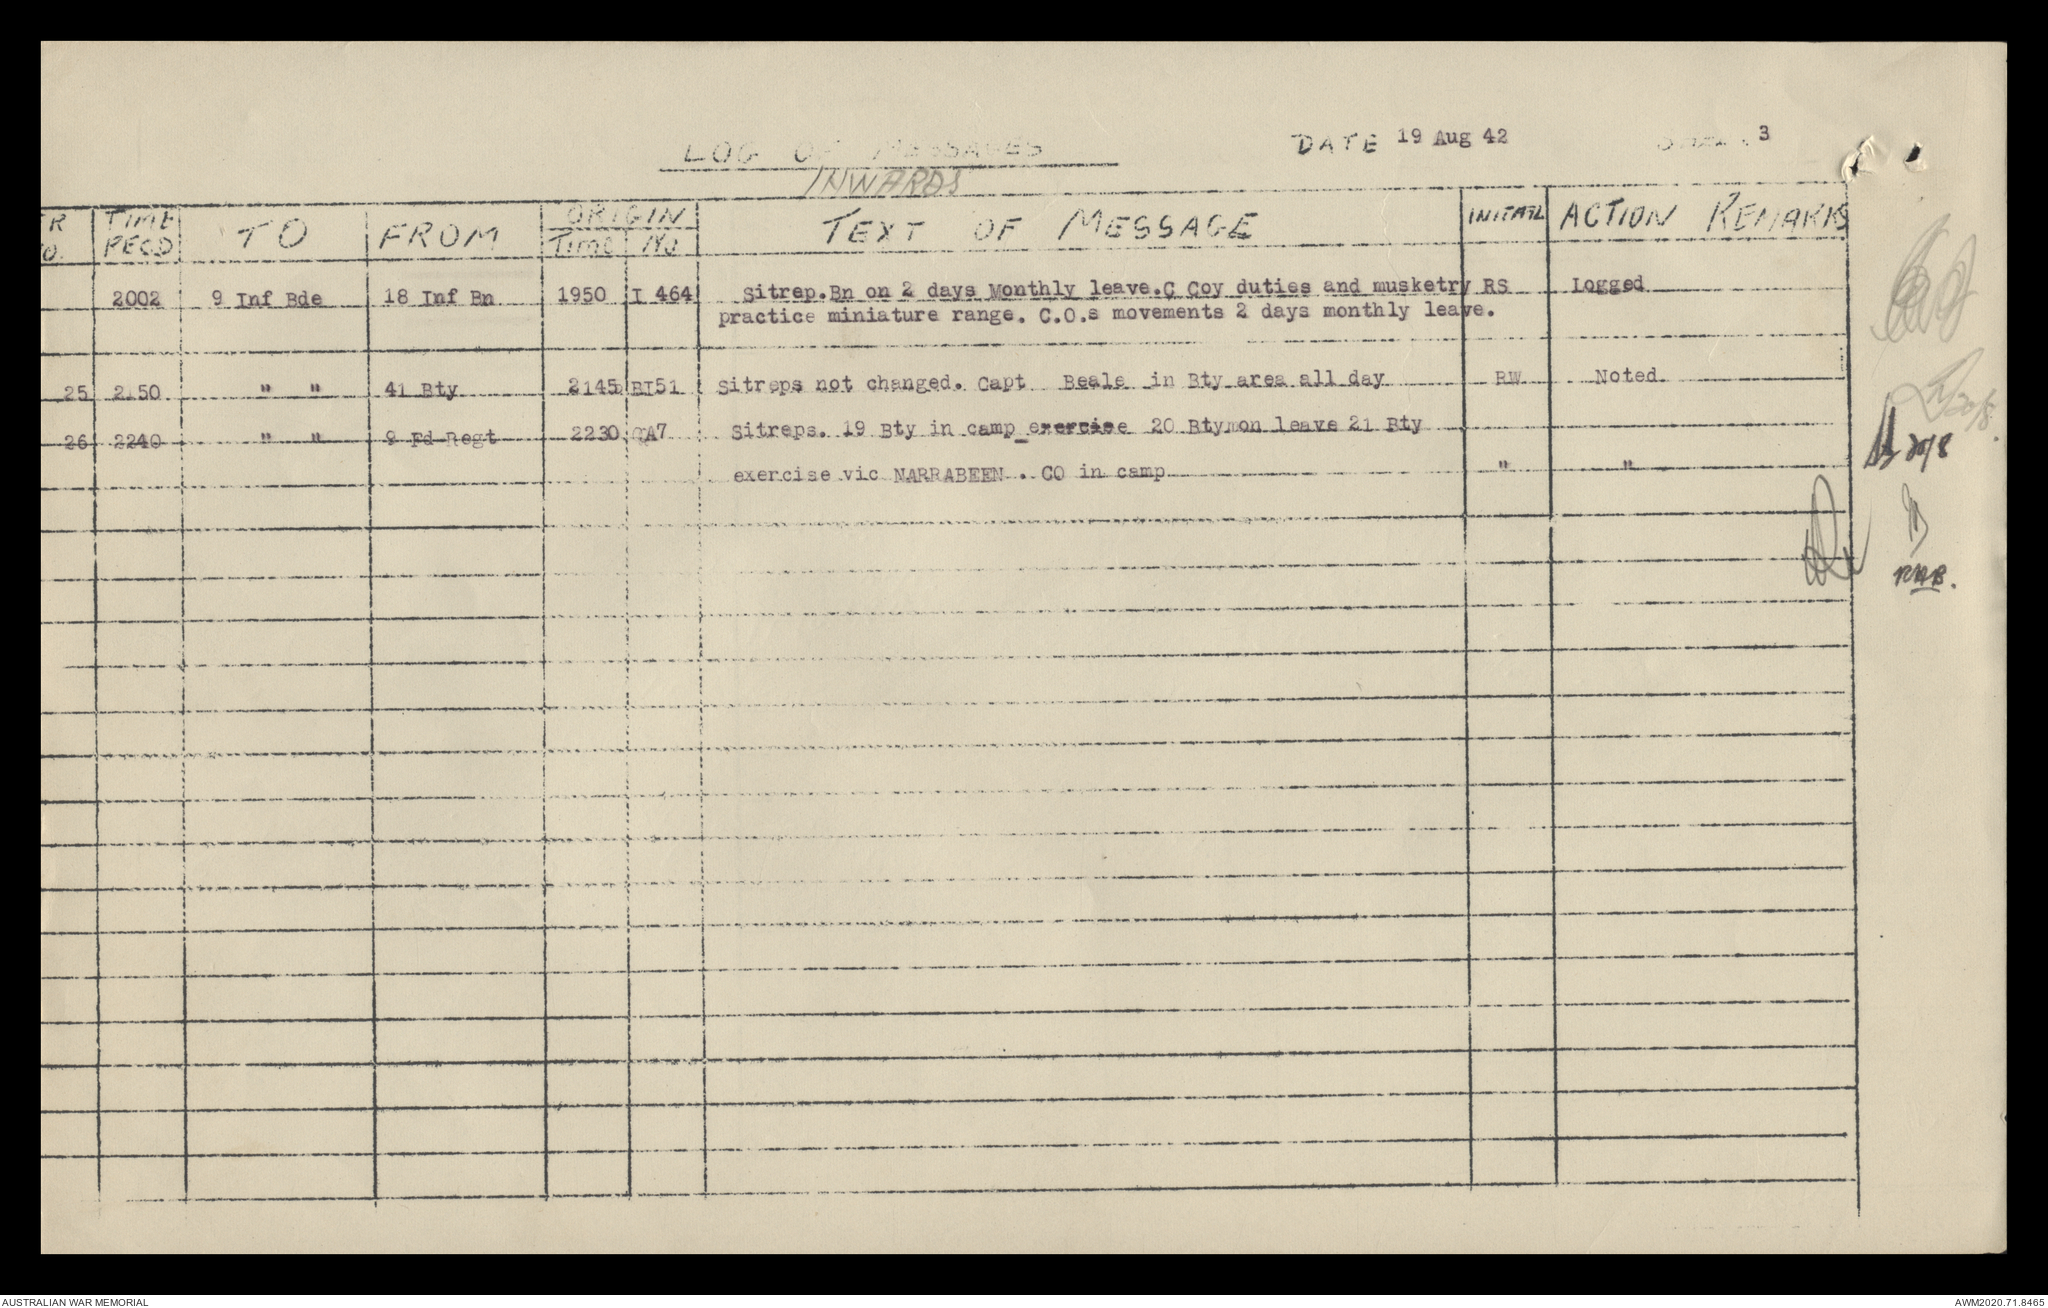 LOG OF MESSAGES
INWARDS
DATE 19 Aug 42
3
TIME RECD TO FROM ORIGIN Time No TEXT OF MESSAGE INITIAL ACTION REMARKS
2002 9 Inf Bde 18 Inf Bn 1950 I 464 Sitrep.Bn on 2 days Monthly leave.C Coy duties and musketry RS Logged
practice miniature range. C.O.s movements 2 days monthly leave.
25 2150 " " 41 Bty 2145 BI51 Sitreps not changed. Capt Beale in Bty area all day RW Noted
26 2240 " " 9 Fd Regt 2230 QA7 Sitreps. 19 Bty in camp exercise 20 Bty on leave 21 Bty
exercise vic NARRABEEN . CO in camp " "
20/8.
20/8
RAB.
AUSTRALIAN WAR MEMORIAL
AWM2020.71.8465